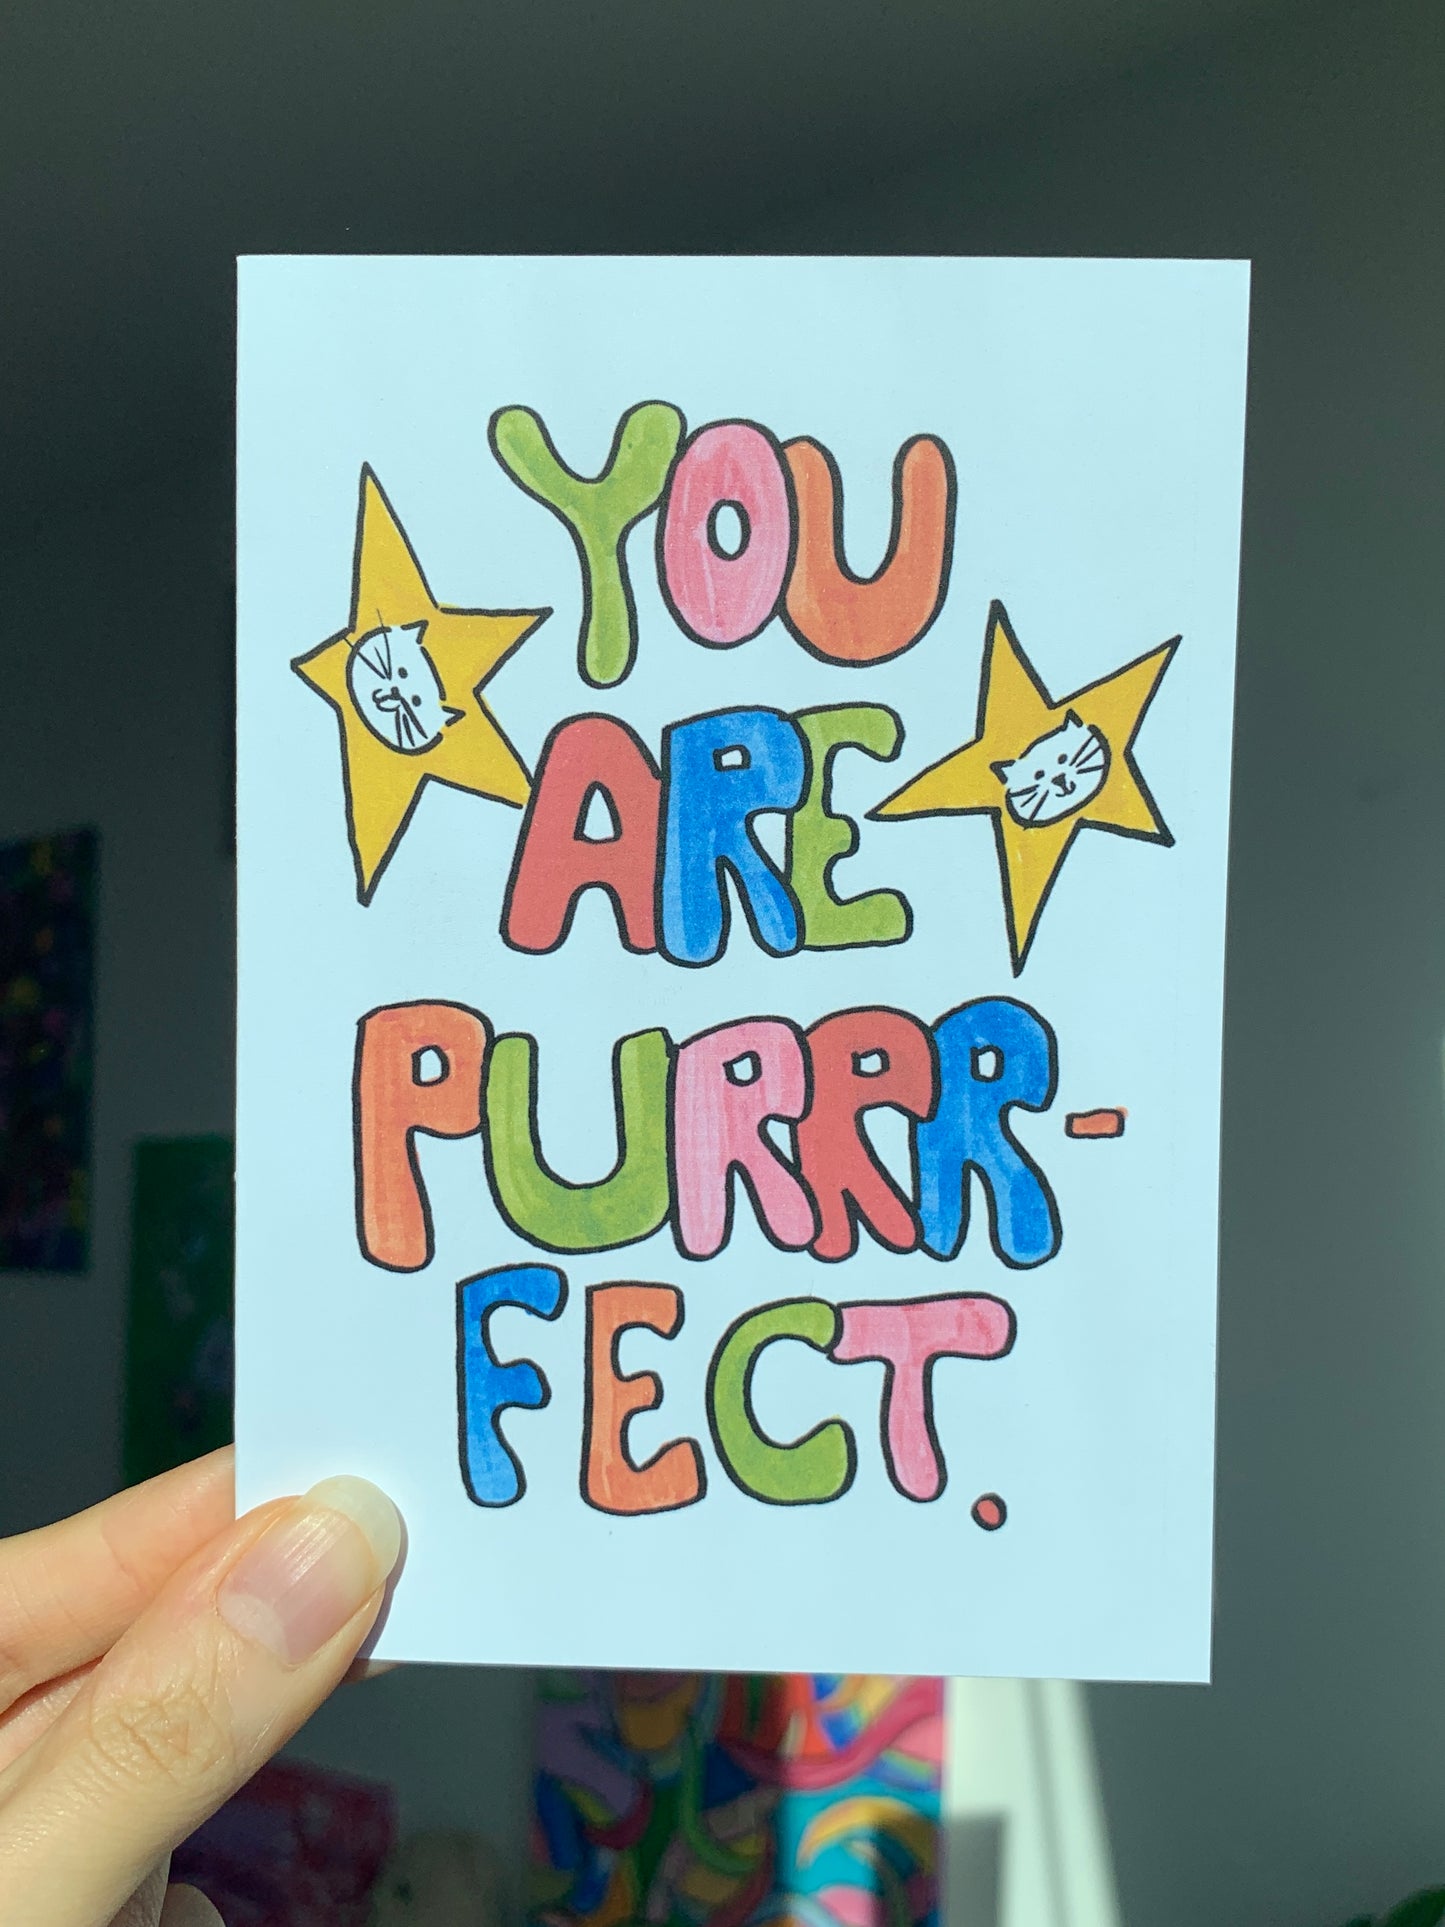 YOU
ARE
PURRR-
FECT.